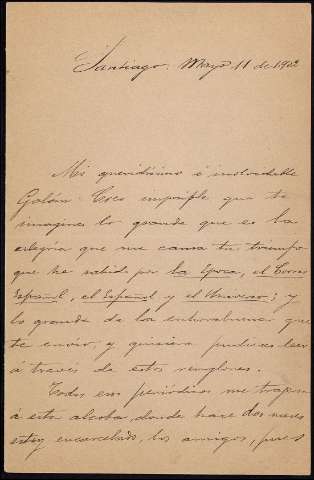 Santiago: Mayo 11 de 1902
Mi queridísimo é inolvidable
Galán: Creo imposible que te
imagines lo grande que es la
alegría que me causa tu triunfo
que he sabido por la Época, el Correo
Español, el Español y el Universo; y
lo grande de la enhorabuena que
te envío; y quisiera pudieras leer
á través de estos renglones.
Todos esos periódicos me trajeron
á esta alcoba, donde hace dos meses
estoy encarcelado, los amigos, pues